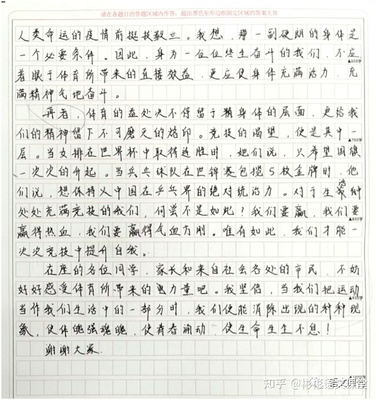 请在各题目的答题区域内作答，超出黑色矩形边框限定区域的答案无效
人类命运的疫情前挺拔数三。我想，那一副硬朗的身体是
一个必要条件。因此，身为一位位终生奋斗的我们，不应
着眼于体育所带来的直接效益，更应使身体充满活力，充
满精神气地奋斗。
再者，体育的益处决不停留于精身体的层面，更给我
们的精神留下不可磨灭的烙印。竞技的渴望，便是其中一
层。当女排在世界杯中取得连胜时，她们说，只希望国旗
一次次的升起。当乒乓球队在世锦赛包揽5枚金牌时，他
们说，想保持住中国在乒乓界的绝对统治力。对于生活中
处处充满竞技的我们，何尝不是如此？我们要赢，我们要
赢得热血，我们要赢得气血方刚。唯有如此，我们才能一
次次竞技中提升自我。
在座的各位同学，家长和来自社会各处的市民，不妨
好好感受体育所带来的魅力量吧。我坚信，当我们把运动
当作我们生活中的一部分时，我们便能消除出现的种种现
象，使体魄强魂魄，使青春涌动，使生命生生不息！
谢谢大家。
知乎